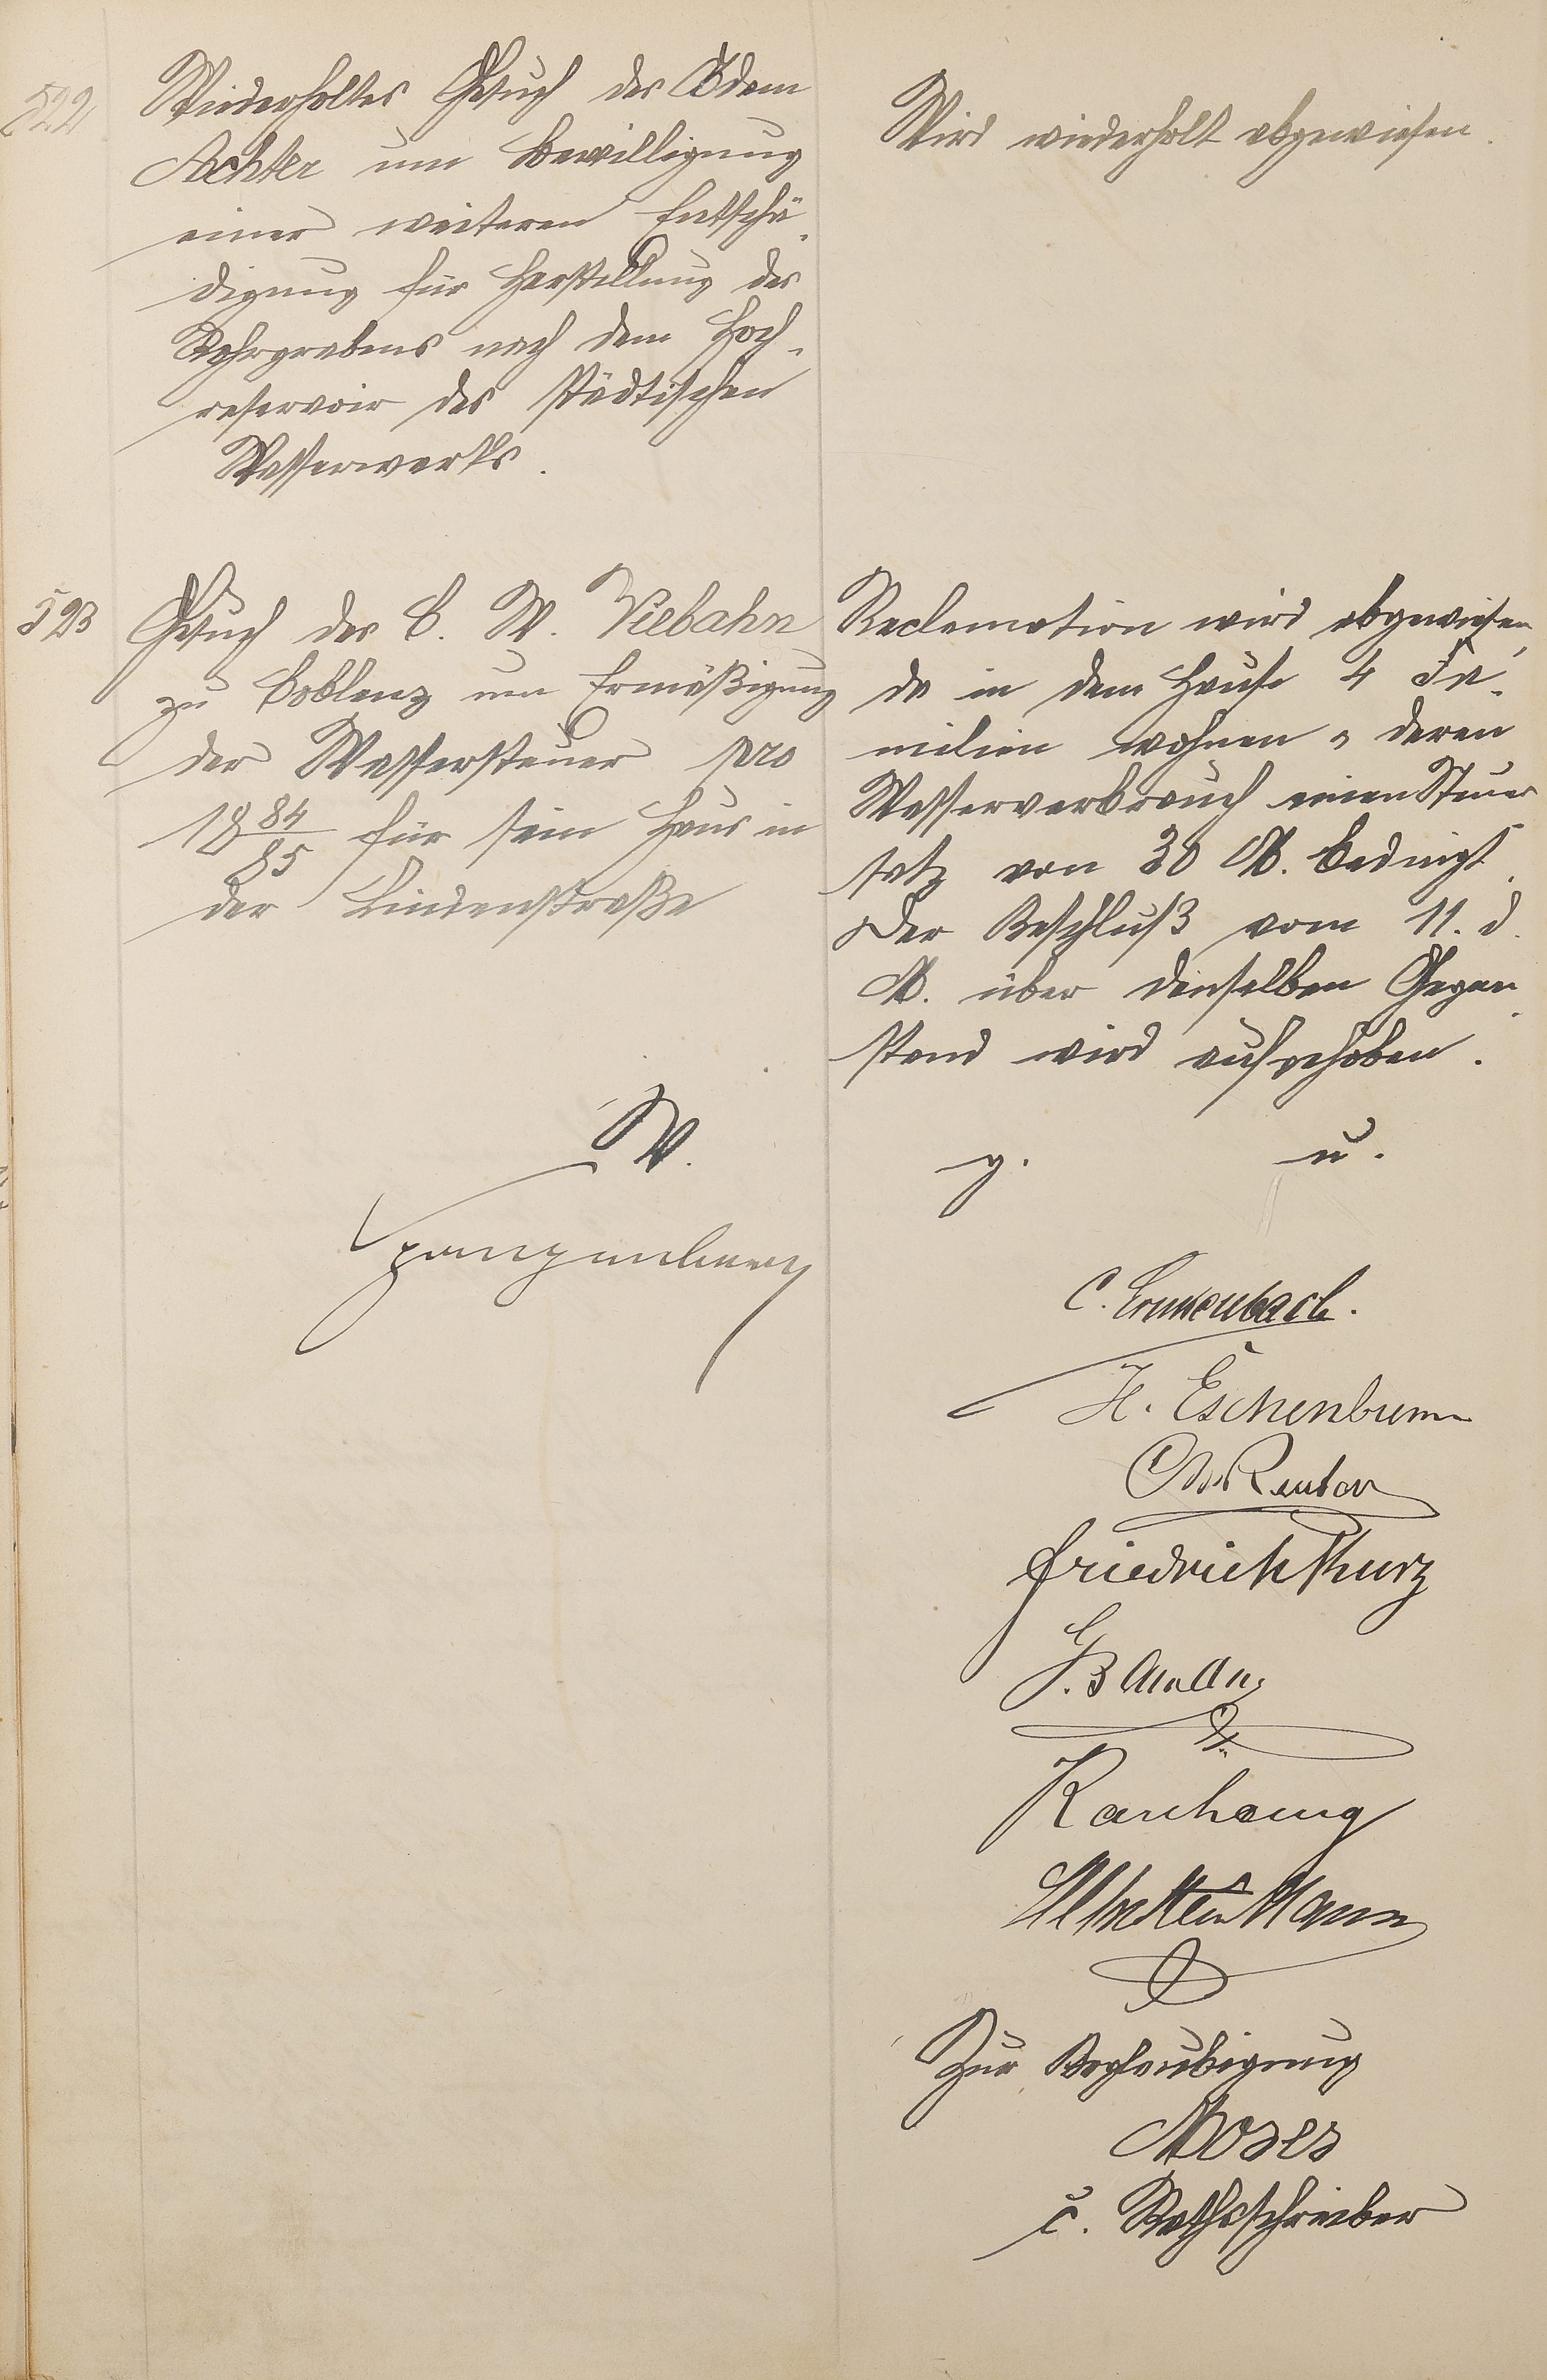 522
Wiederholtes Gesuch des Adam
Achter um Bewilligung
einer weiteren Entschä-
digung für Herstellung des
Rohrgrabens nach dem Hoch-
reservoir des städtischen
Wasserwerks.
Wird wiederholt abgewiesen.
523
Gesuch des C. W. Viebahn
zu Coblenz um Ermäßigung
der Wassersteuer pro
1884/85 für sein Haus in
der Lindenstraße
Reclamation wird abgewiesen,
da in dem Hause 4 Fa-
milien wohnen u deren
Wasserverbrauch einen Steuer
satz von 30 M. bedingt.
Der Beschluß vom 11. d.
M. über denselben Gegen-
stand wird aufgehoben.
W.
Spangenberg
g. u.
C.
H. Eschenbrenn
Reuter
Friedrich Kurz
Karcher
Mann
Zur Beglaubigung
Moses
c. Rathsschreiber